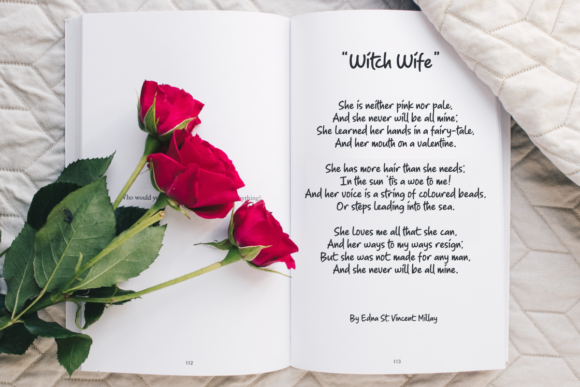 ho would yo
nything?
112
"Witch Wife"
She is neither pink nor pale,
And she never will be all mine;
She learned her hands in a fairy-tale,
And her mouth on a valentine.
She has more hair than she needs;
In the sun 'tis a woe to me!
And her voice is a string of coloured beads,
Or steps leading into the sea.
She loves me all that she can,
And her ways to my ways resign;
But she was not made for any man,
And she never will be all mine.
By Edna St. Vincent Millay
113